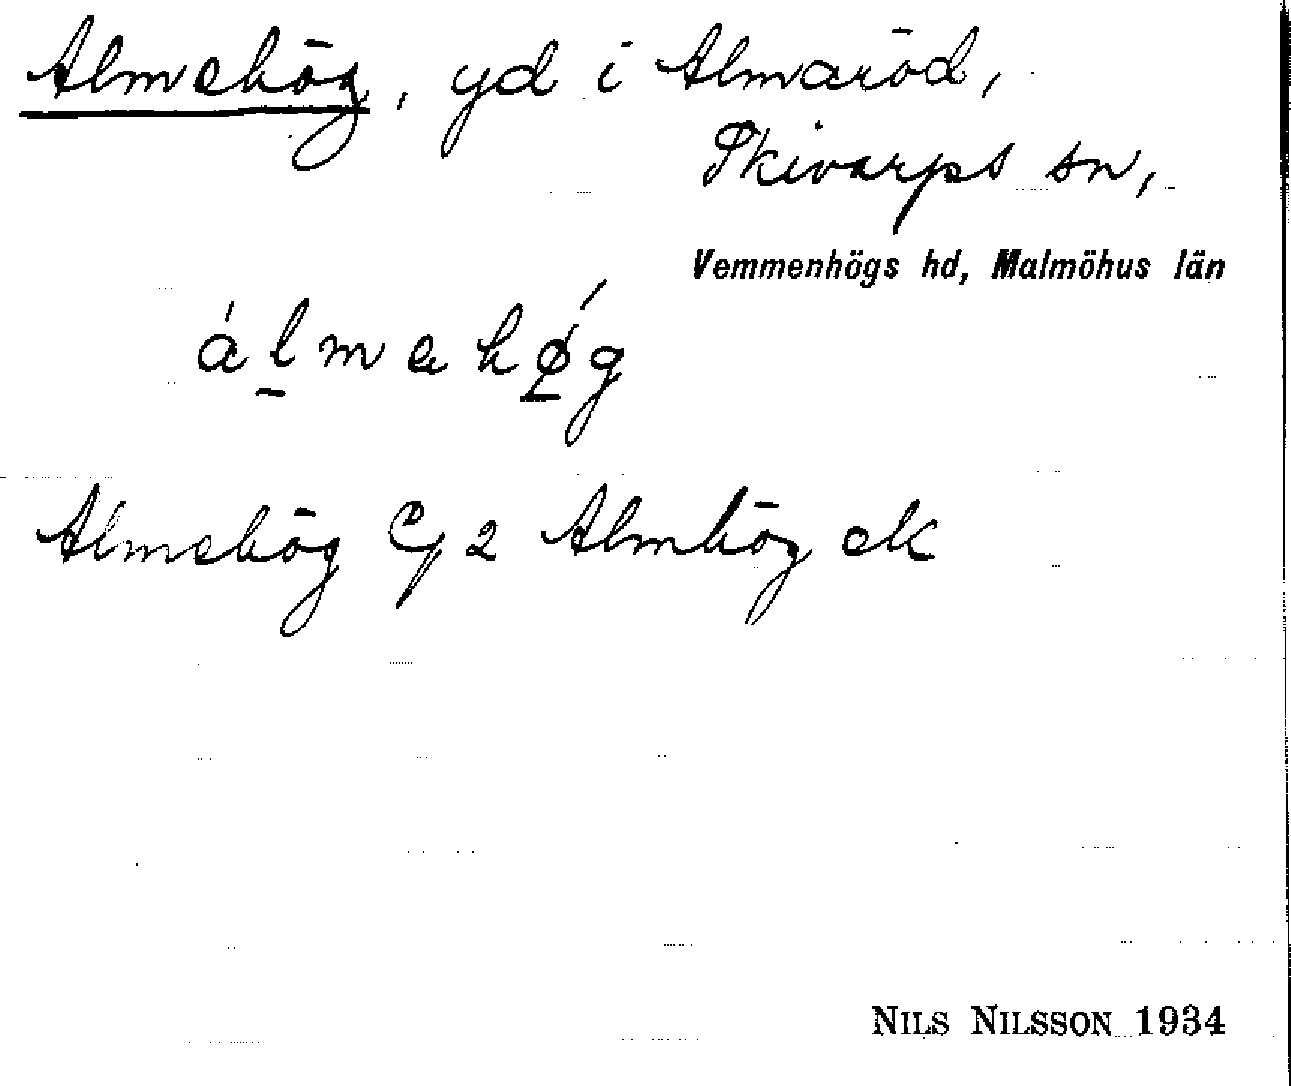 Almehög, yd i Almaröd,
Skivarps sn,
Vemmenhögs hd, Malmöhus län
álmahǿg
Almehög Cg 2 Almhög ek
NILS NILSSON 1934